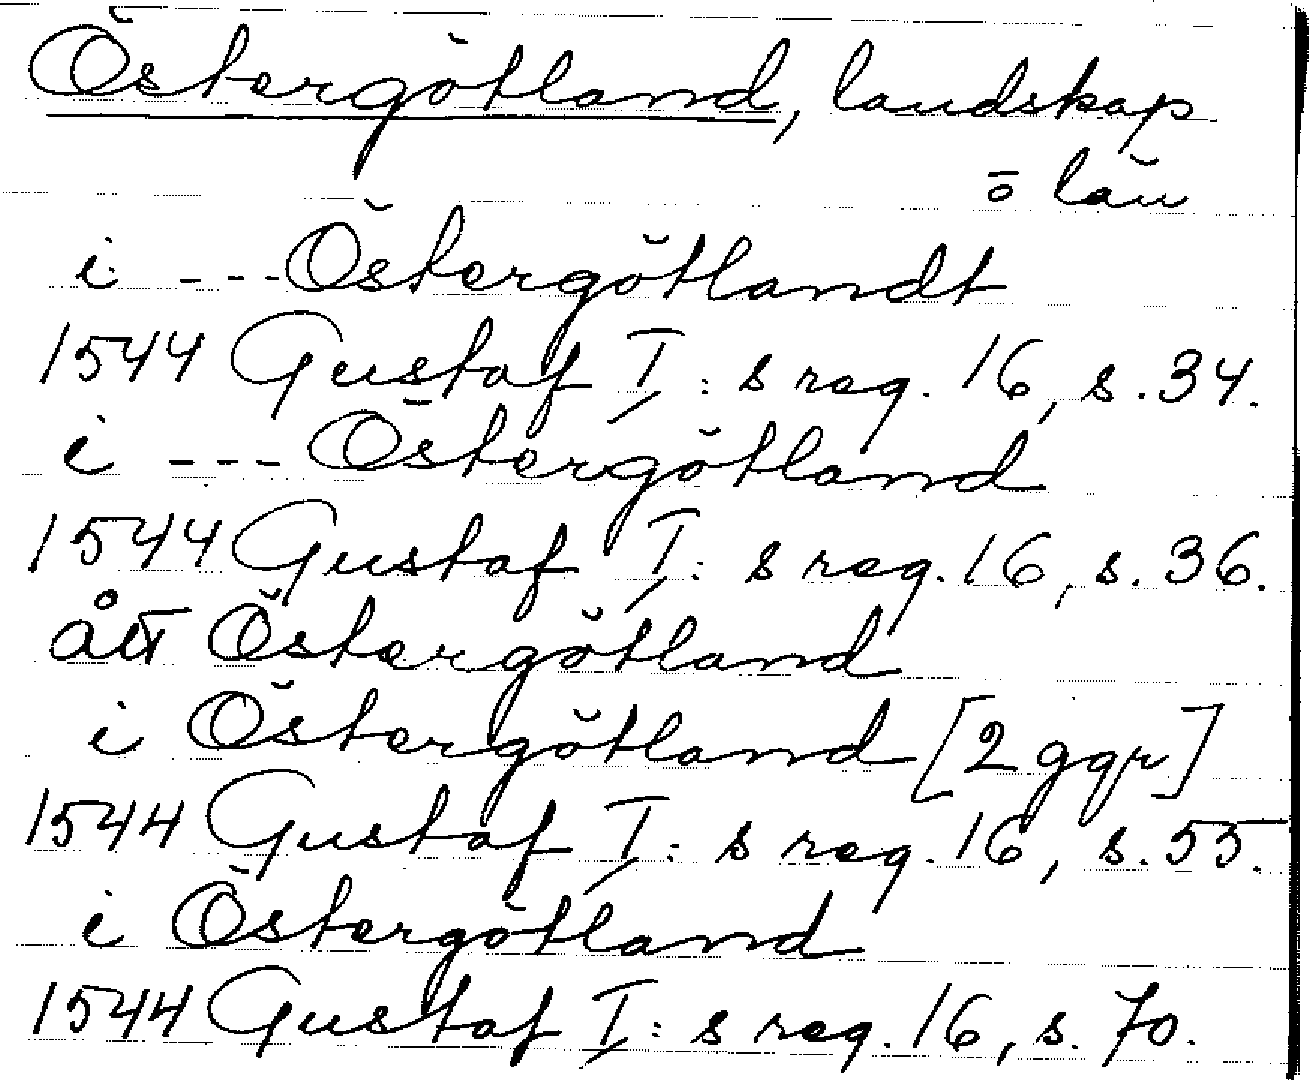 Östergötland, landskap
o län
i --- Östergötlandt
1544 Gustaf I:s reg. 16, s. 34.
i --- Östergötland
1544 Gustaf I:s reg. 16, s. 36.
åtr Östergötland
i Östergötland [2 ggr]
1544 Gustaf I:s reg. 16, s. 55.
i Östergötland
1544 Gustaf I:s reg. 16, s. 70.